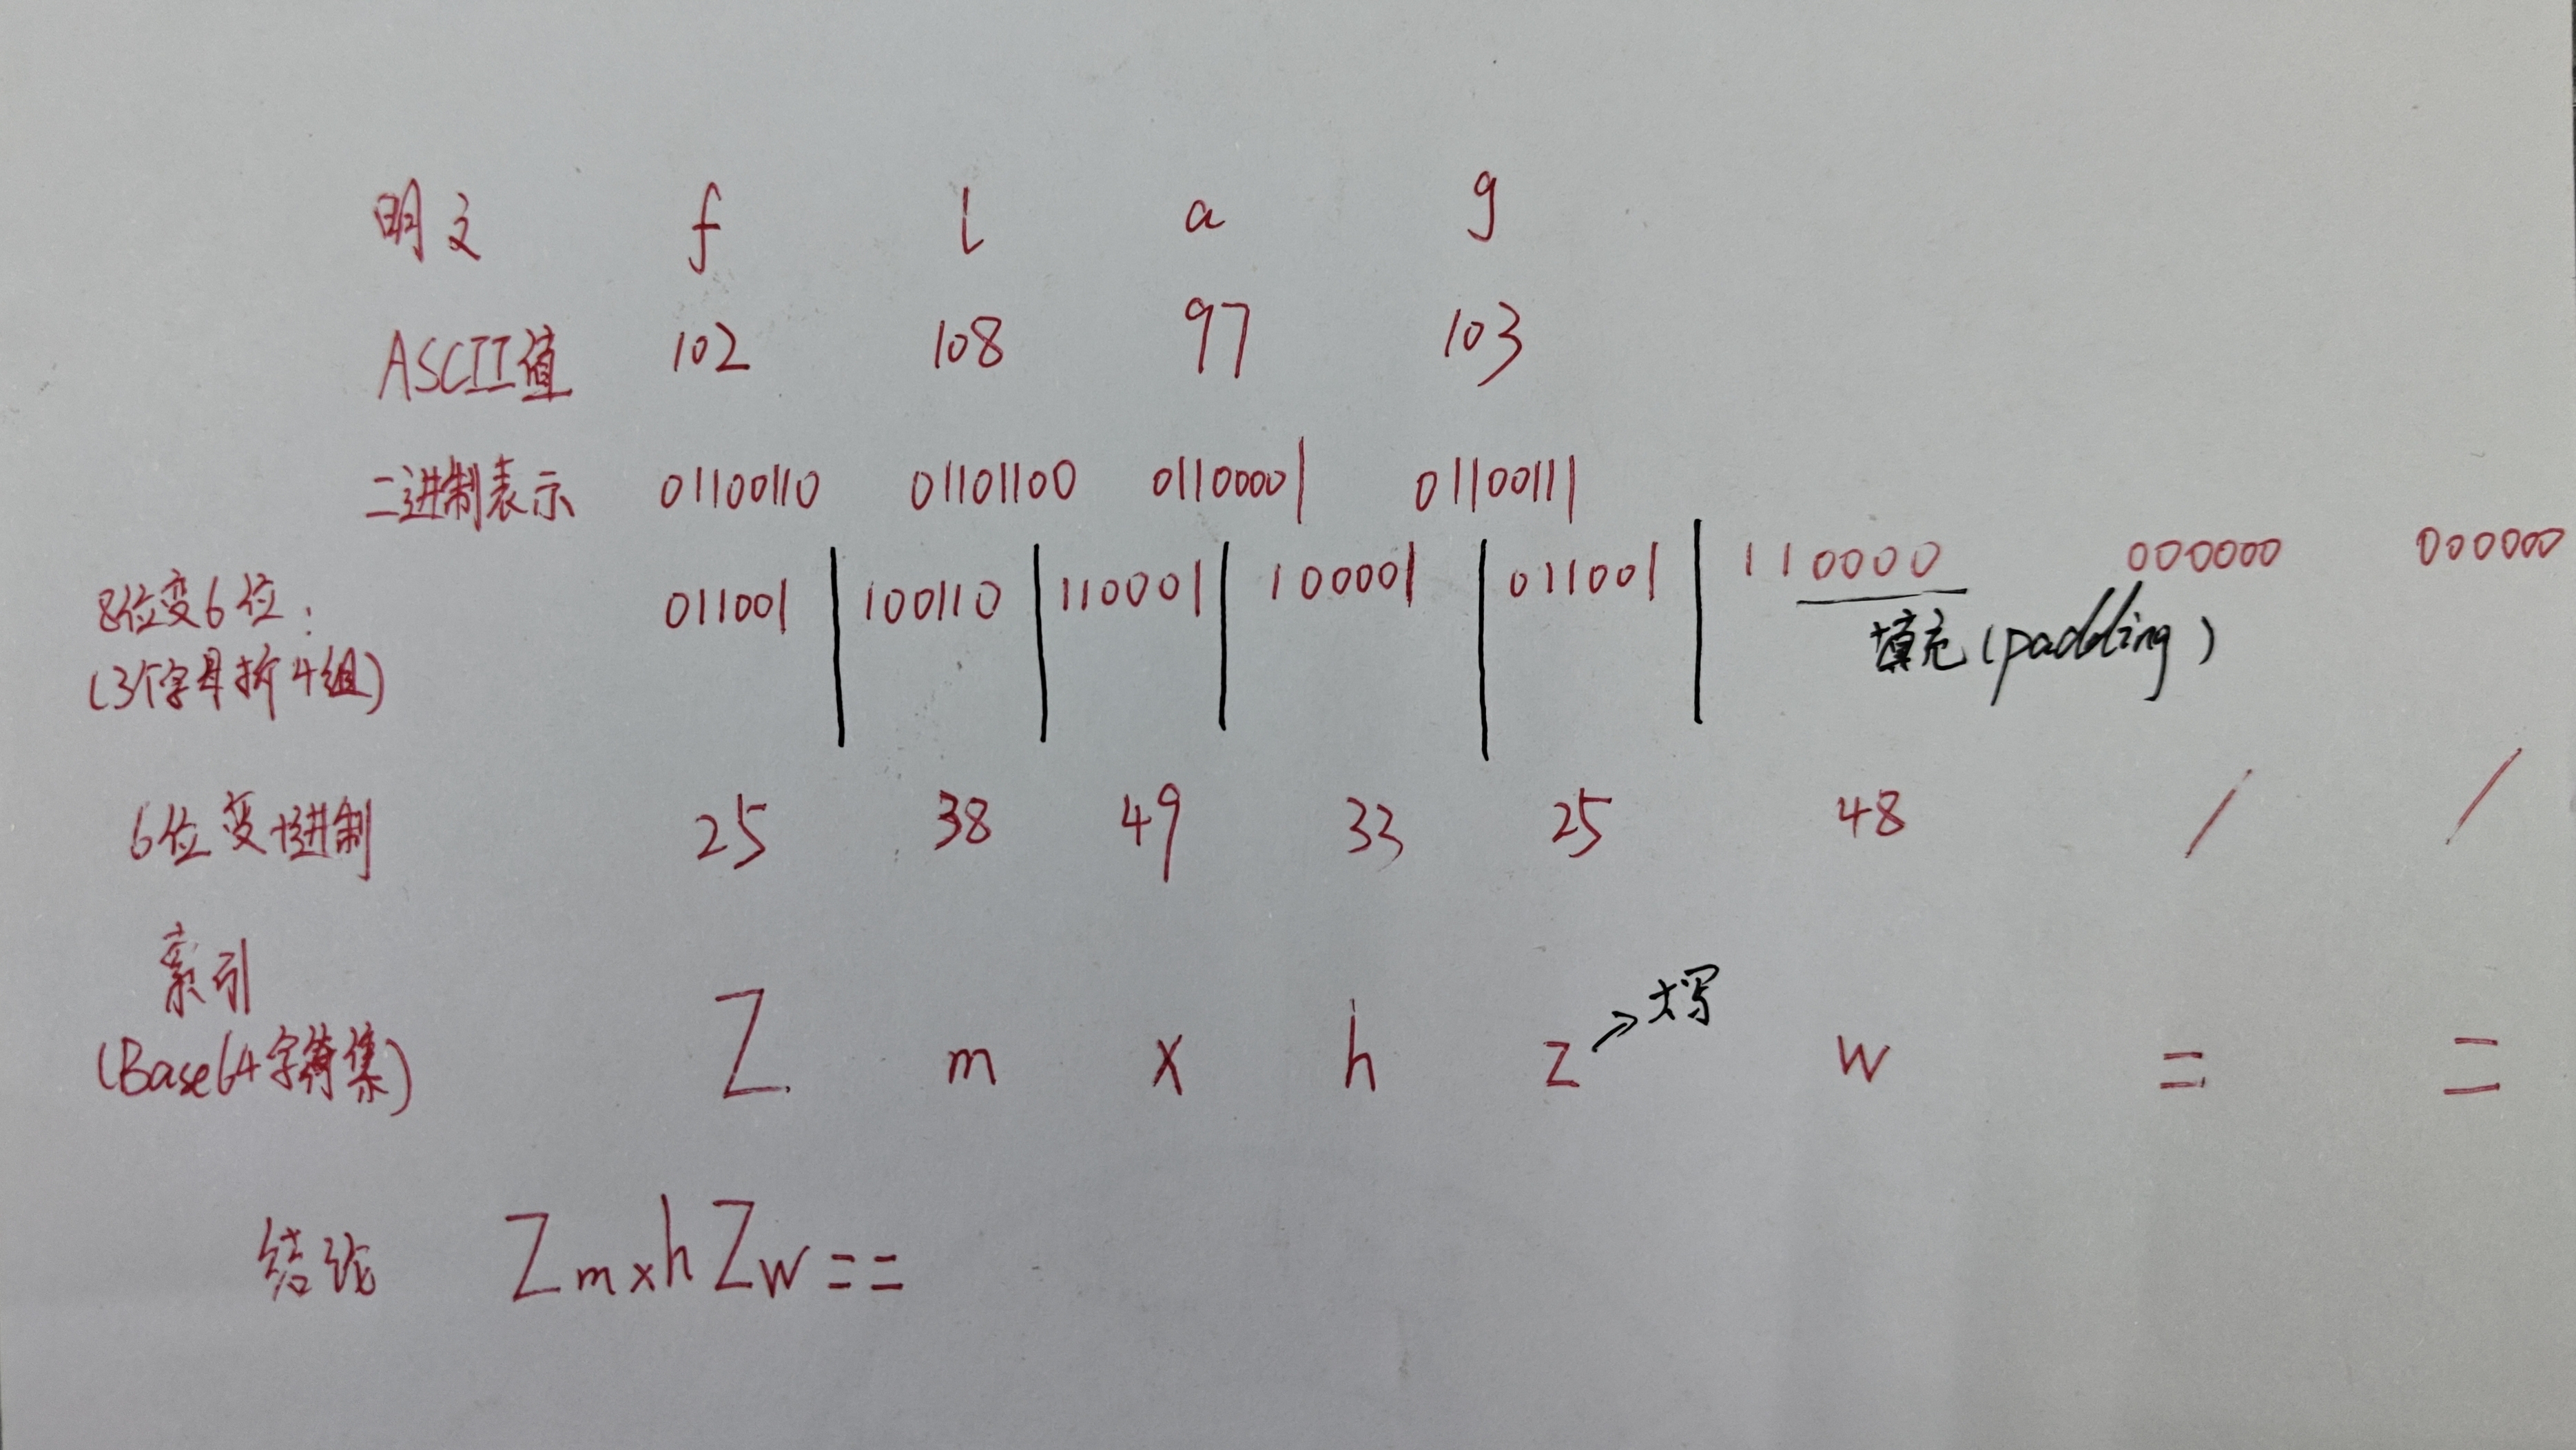 明文 f l a g
ASCII值 102 108 97 103
二进制表示 01100110 01101100 01100001 01100111
8位变6位: 011001 | 100110 | 110001 | 100001 | 011001 | 110000 000000 000000
(3个字母拆4组) 填充(padding)
6位变十进制 25 38 49 33 25 48 / /
索引
大写
(Base64字符集) Z m x h z → w = =
结论 ZmxhZw==